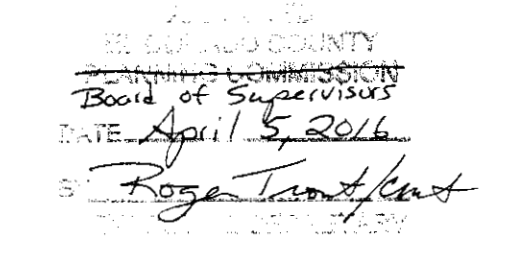 EL DORADO COUNTY
PLANNING COMMISSION
Board of Supervisors
DATE April 5, 2016
Roger Trout/cmt